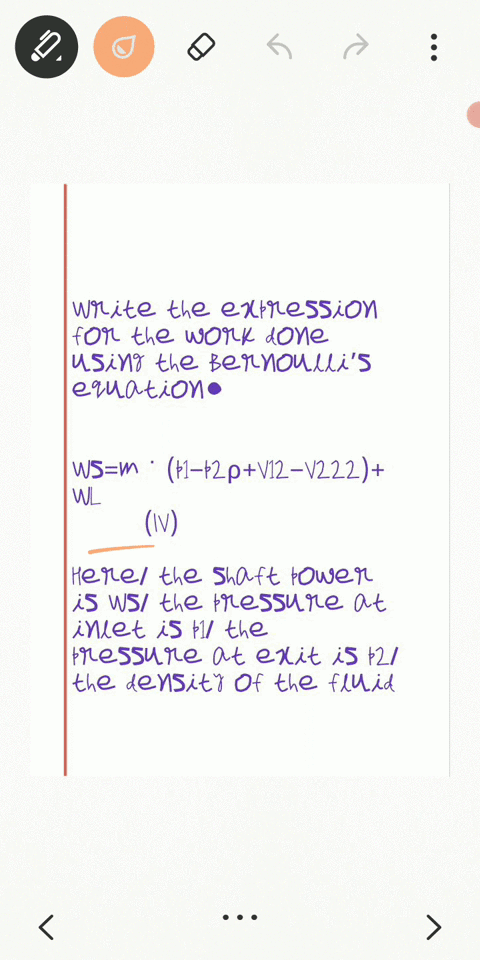 Write the expression
for the work done
using the Bernoulli's
equation●
WS=m ˙ (p1−p2ρ+V12−V222)+
WL
(IV)
Here/ the shaft power
is WS/ the pressure at
inlet is p1/ the
pressure at exit is p2/
the density of the fluid